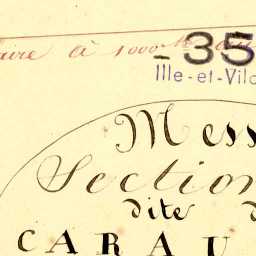 aire à 1000
- 35
Ille-et-Vila
Mess
Section
dite d
CARAU